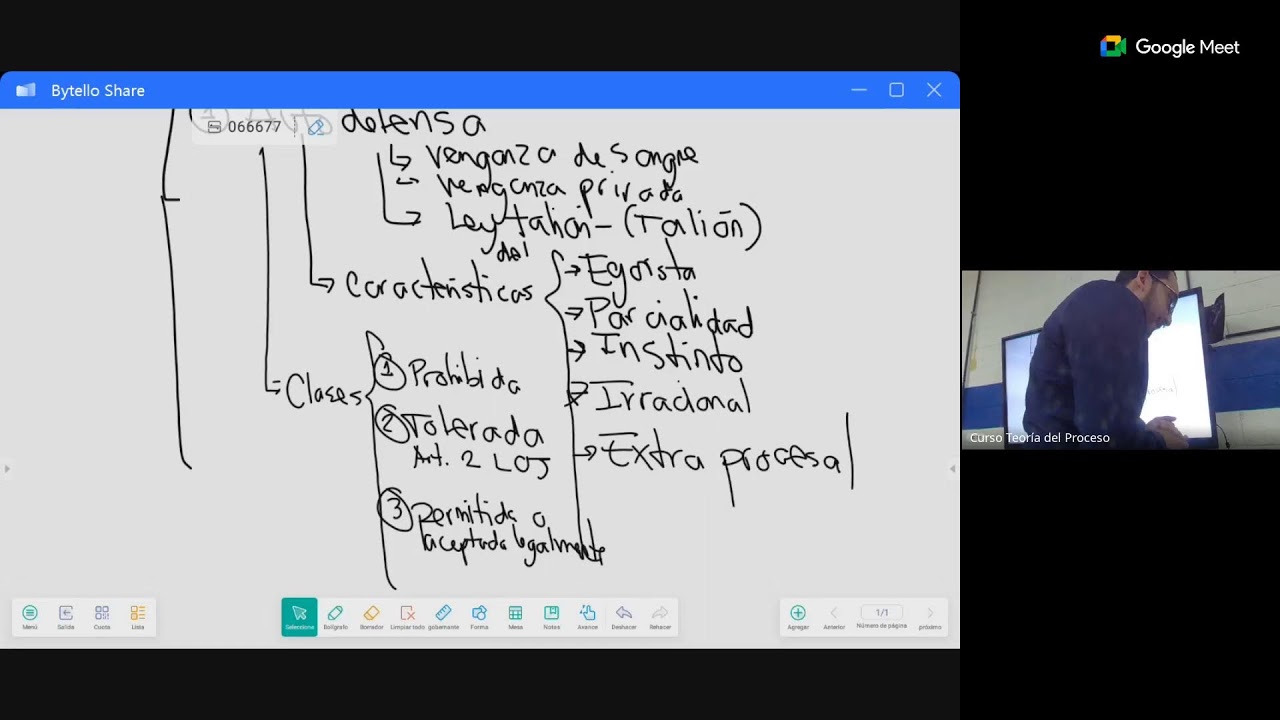 Google Meet
Bytello Share
066677
defensa
venganza de sangre
venganza privada
Ley talión - (Talión)
del
Características
Egoísta
Parcialidad
Instinto
Irracional
Extra procesal
Clases
1 Prohibida
2 Tolerada
Art. 2 LOJ
3 permitida o
aceptada legalmente
Curso Teoría del Proceso
Menú
Salida
Cuota
Lista
Selecciona
Bolígrafo
Borrador
Limpiar todo
gobernante
Forma
Mesa
Notas
Avance
Deshacer
Rehacer
Agregar
Anterior
1/1
Número de página
próximo